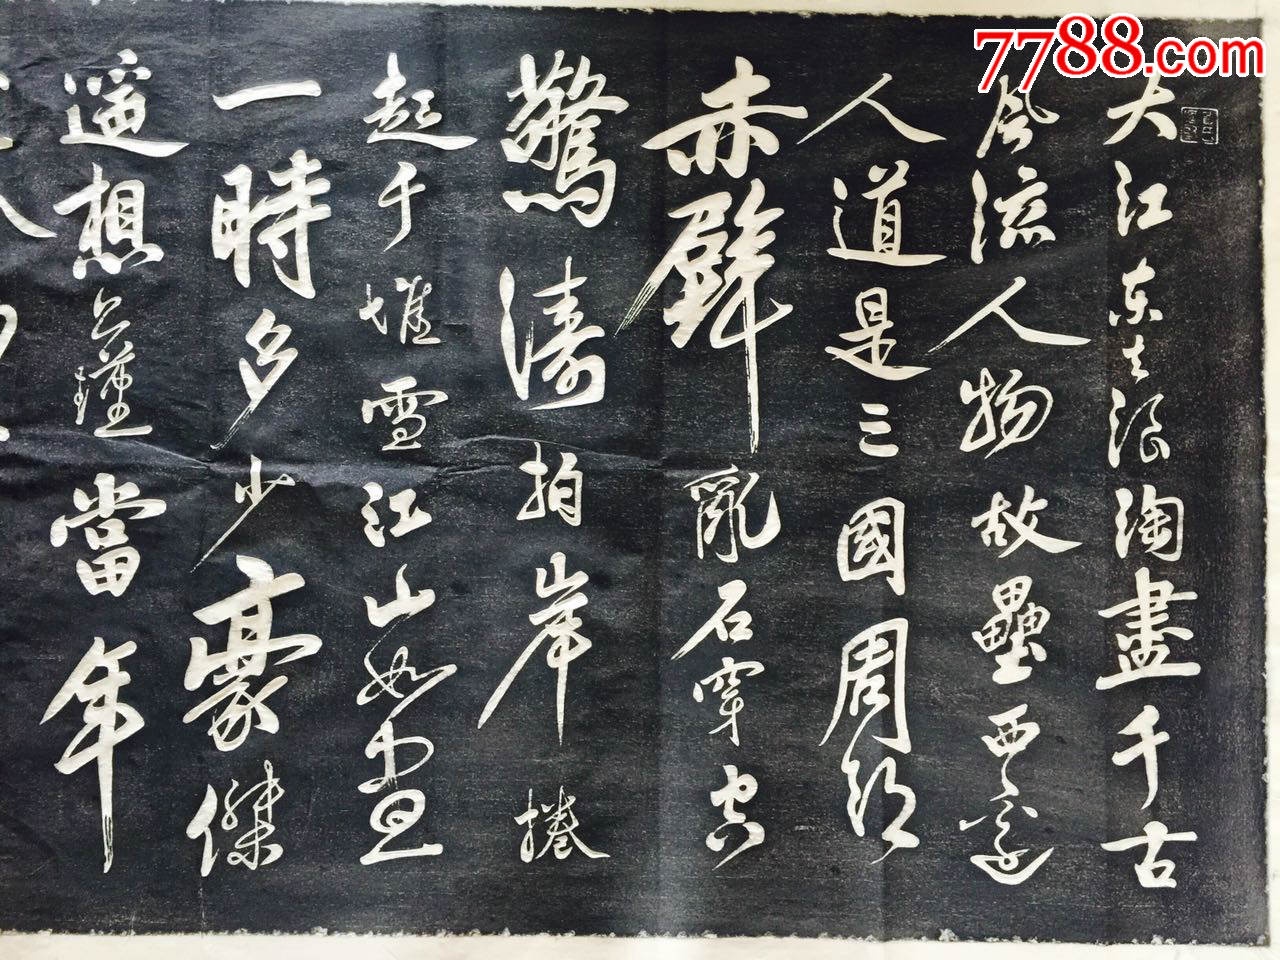 7788.com
大江东去浪淘盡千古
風流人物故壘西邊
人道是三國周郎
赤壁亂石穿空
驚濤拍岸捲
起千堆雪江山如畫
一時多少豪傑
遥想公瑾當年